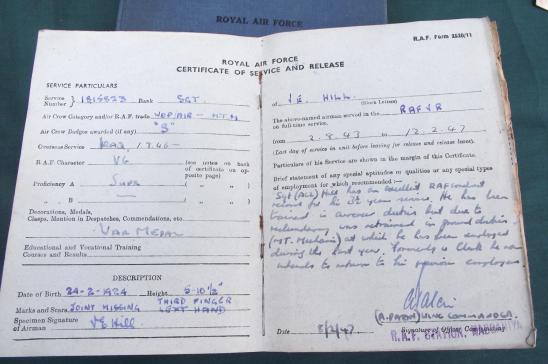 ROYAL AIR FORCE
R.A.F. Form 2520/11
ROYAL AIR FORCE
CERTIFICATE OF SERVICE AND RELEASE
SERVICE PARTICULARS
Service Number } 1815823 Rank SGT.
Air Crew Category and/or R.A.F. trade WOP/AIR - M.T.M
Air Crew Badges awarded (if any) "S"
Overseas Service IRAQ, 1946 -
R.A.F. Character VG (see notes on back of certificate on opposite page)
Proficiency A Supr ( " " )
" B — ( " " )
Decorations, Medals,
Clasps, Mention in Despatches, Commendations, etc.
WAR MEDAL
Educational and Vocational Training
Courses and Results
DESCRIPTION
Date of Birth 24-2-1924 Height 5-10½"
Marks and Scars JOINT MISSING THIRD FINGER LEFT HAND
Specimen Signature of Airman Hill
of HILL
(Block Letters)
The above-named airman served in the RAFVR
on full-time service,
from 2.8.43 to 12.2.47
(Last day of service in unit before leaving for release and release leave).
Particulars of his Service are shown in the margin of this Certificate.
Brief statement of any special aptitudes or qualities or any special types
of employment for which recommended :—
Sgt (ACI) Hill has an excellent RAF conduct
record for his 3½ years service. He has been
trained in aircrew duties but due to
redundancy was retrained in ground duties
(MT. Mechanic) at which he has been employed
during the last year. Formerly a Clerk he now
intends to return to his previous employers
WING COMMANDER.
Date 8/2/47 Signature of Officer Commanding
R.A.F. STATION, HABBANIYA